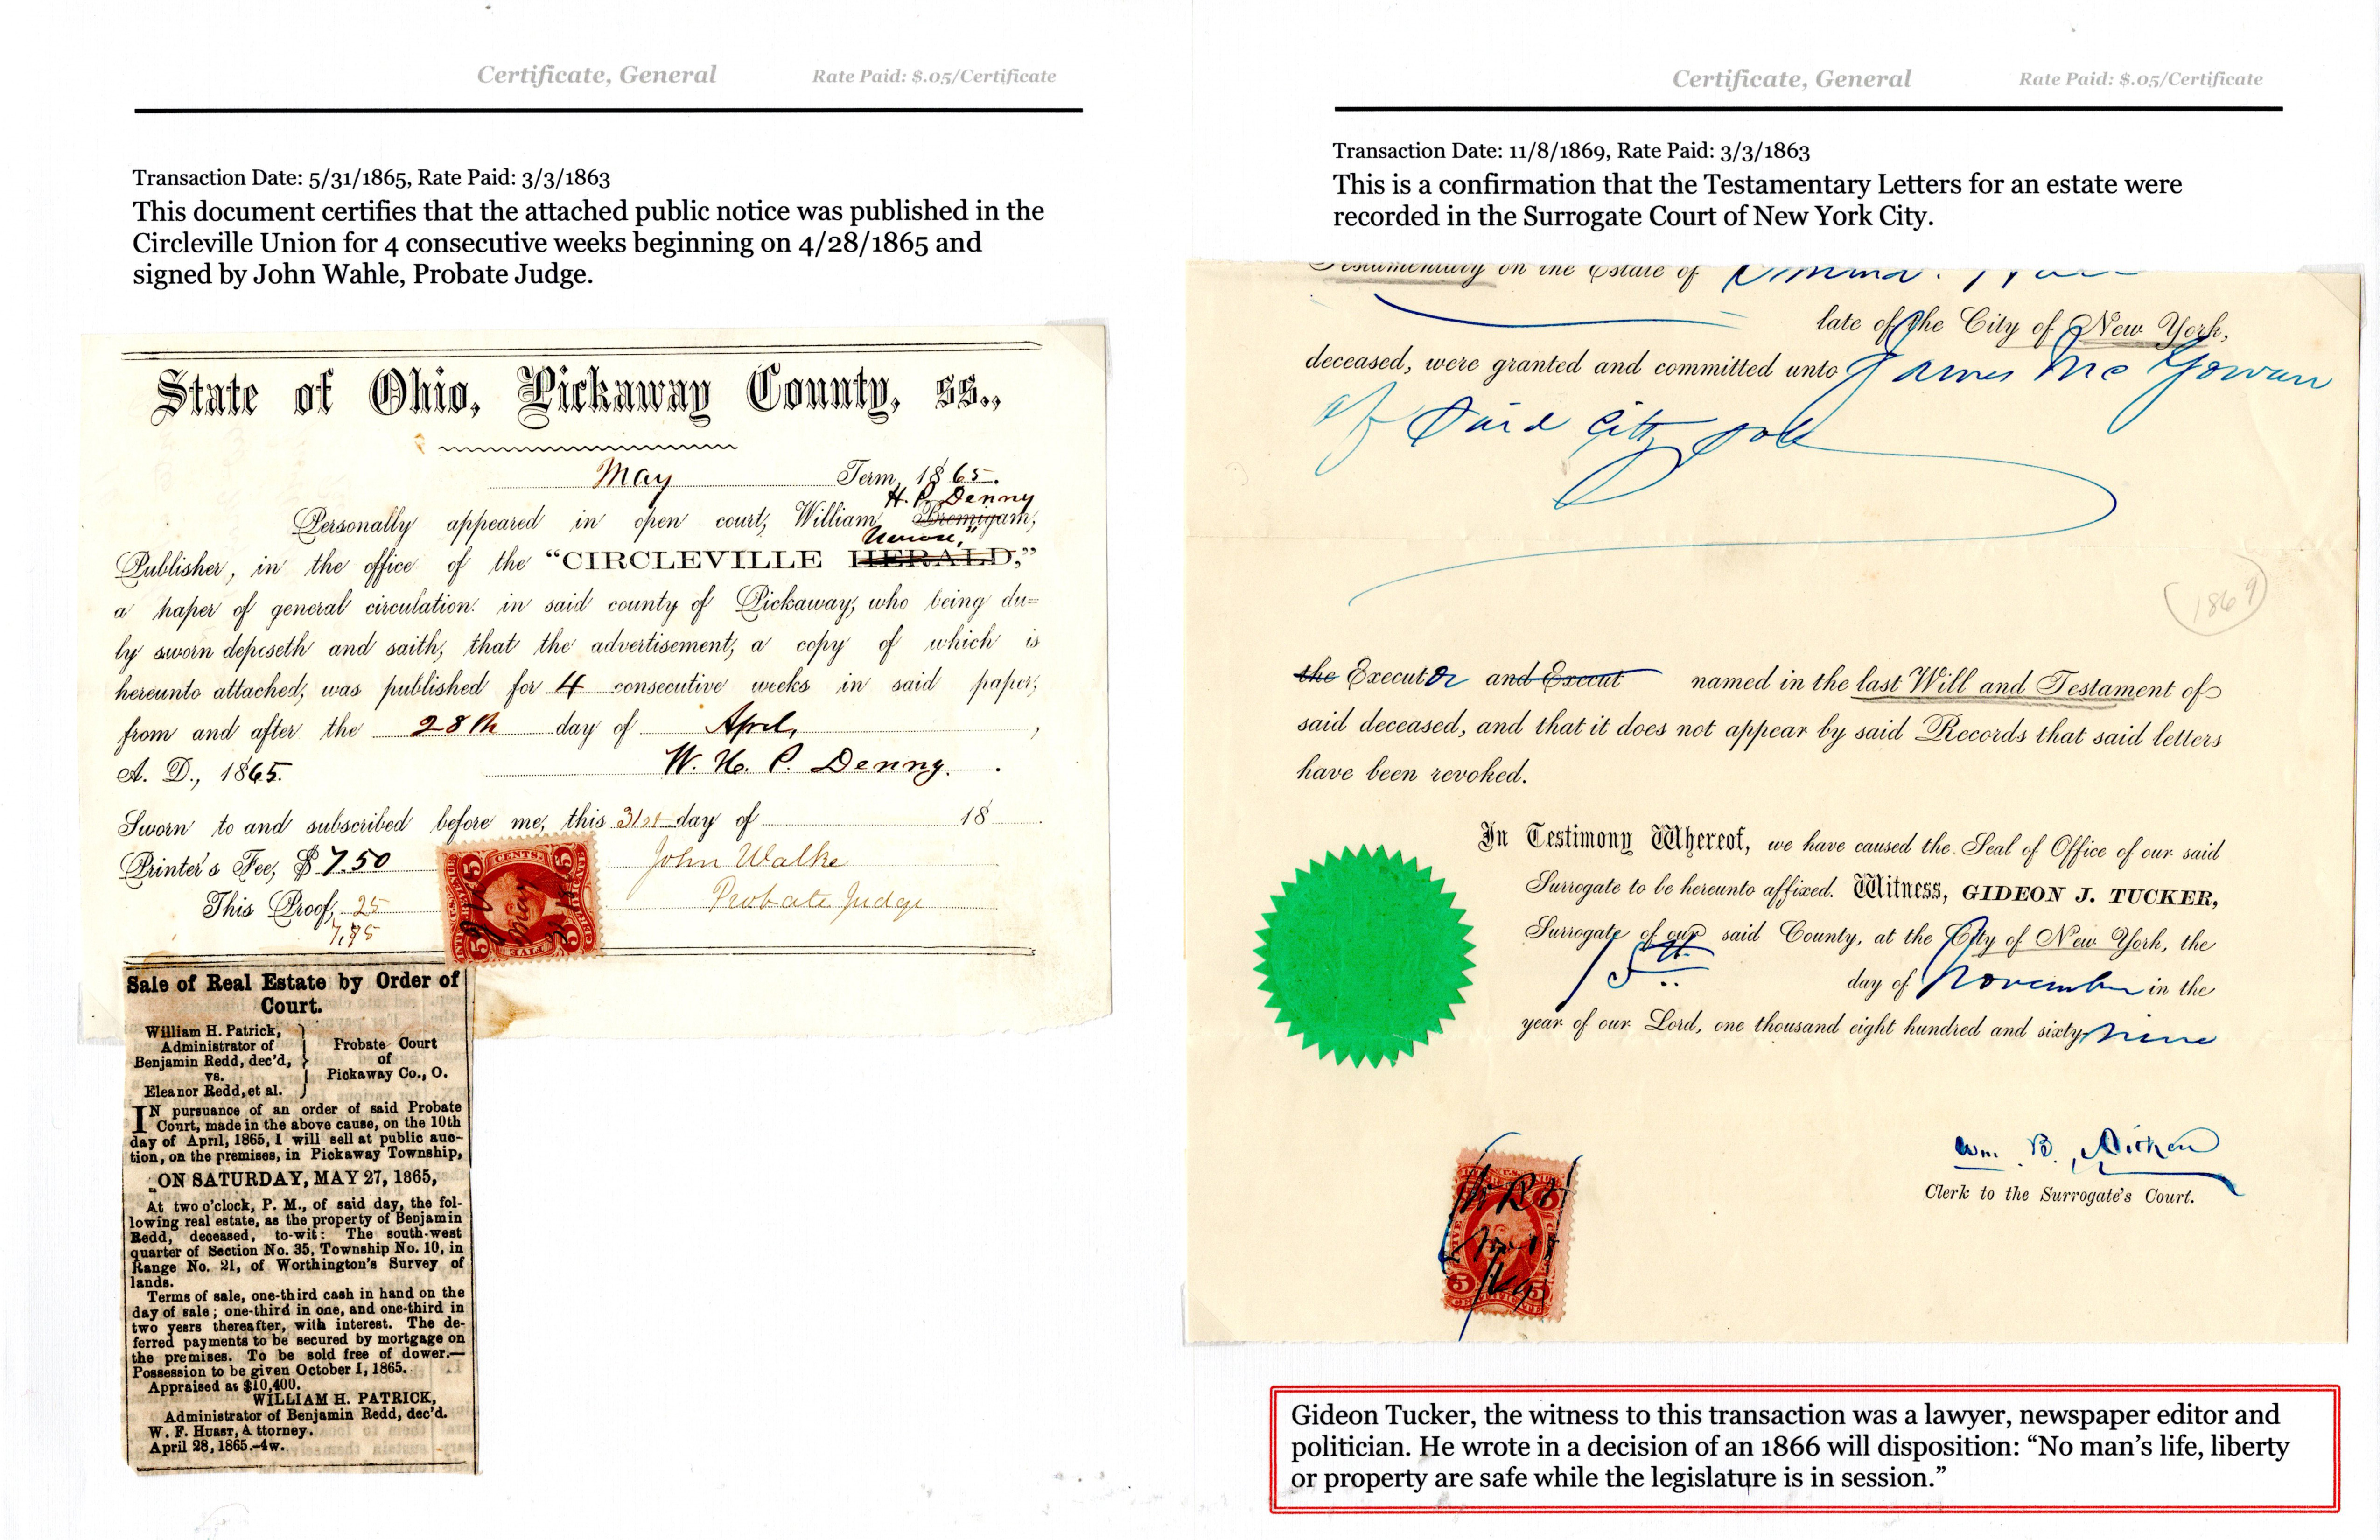 Certificate, General Rate Paid: $.05/Certificate
Transaction Date: 5/31/1865, Rate Paid: 3/3/1863
This document certifies that the attached public notice was published in the
Circleville Union for 4 consecutive weeks beginning on 4/28/1865 and
signed by John Wahle, Probate Judge.
State of Ohio, Pickaway County, ss.,
May Term, 1865.
H. P. Denny
Personally appeared in open court, William Bremigam,
Union,"
Publisher, in the office of the "CIRCLEVILLE HERALD,"
a paper of general circulation in said county of Pickaway, who being du=
ly sworn deposeth and saith, that the advertisement, a copy of which is
hereunto attached, was published for 4 consecutive weeks in said paper,
from and after the 28th day of April,
A. D., 1865. W. H. P. Denny.
Sworn to and subscribed before me, this 31st day of 18
Printer's Fee, $ 7.50 John Walke
This Proof, 25 Probate Judge
CENTS.
5 5
May
5 5
Sale of Real Estate by Order of
Court.
William H. Patrick,
Administrator of
Benjamin Redd, dec'd,
vs.
Eleanor Redd, et al.
Probate Court
of
Pickaway Co., O.
IN pursuance of an order of said Probate
Court, made in the above cause, on the 10th
day of April, 1865, I will sell at public auc-
tion, on the premises, in Pickaway Township,
ON SATURDAY, MAY 27, 1865,
At two o'clock, P. M., of said day, the fol-
lowing real estate, as the property of Benjamin
Redd, deceased, to-wit: The south-west
quarter of Section No. 35, Township No. 10, in
Range No. 21, of Worthington's Survey of
lands.
Terms of sale, one-third cash in hand on the
day of sale; one-third in one, and one-third in
two years thereafter, with interest. The de-
ferred payments to be secured by mortgage on
the premises. To be sold free of dower.—
Possession to be given October 1, 1865.
Appraised at $10,400.
WILLIAM H. PATRICK,
Administrator of Benjamin Redd, dec'd.
W. F. HURST, Attorney.
April 28, 1865.-4w.
Certificate, General Rate Paid: $.05/Certificate
Transaction Date: 11/8/1869, Rate Paid: 3/3/1863
This is a confirmation that the Testamentary Letters for an estate were
recorded in the Surrogate Court of New York City.
Testamentary on the Estate of
late of the City of New York,
deceased, were granted and committed unto James McGowan
of said City sole
1869
the Executor and Execut named in the last Will and Testament of
said deceased, and that it does not appear by said Records that said letters
have been revoked.
In Testimony Whereof, we have caused the Seal of Office of our said
Surrogate to be hereunto affixed. Witness, GIDEON J. TUCKER,
Surrogate of our said County, at the City of New York, the
day of November in the
year of our Lord, one thousand eight hundred and sixty nine
Wm. B. Aitken
Clerk to the Surrogate's Court.
5 5
CERTIFICATE
Gideon Tucker, the witness to this transaction was a lawyer, newspaper editor and
politician. He wrote in a decision of an 1866 will disposition: “No man’s life, liberty
or property are safe while the legislature is in session.”